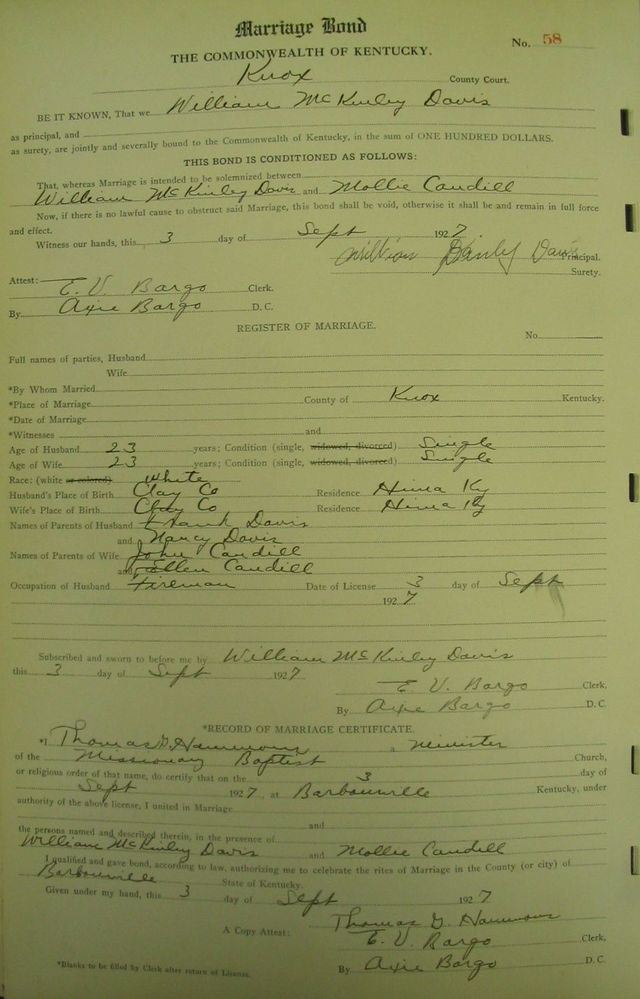 Marriage Bond
No. 58
THE COMMONWEALTH OF KENTUCKY.
Knox County Court.
BE IT KNOWN, That we William McKinley Davis
as principal, and
as surety, are jointly and severally bound to the Commonwealth of Kentucky, in the sum of ONE HUNDRED DOLLARS.
THIS BOND IS CONDITIONED AS FOLLOWS:
That, whereas Marriage is intended to be solemnized between
William McKinley Davis and Mollie Caudill
Now, if there is no lawful cause to obstruct said Marriage, this bond shall be void, otherwise it shall be and remain in full force
and effect.
Witness our hands, this 3 day of Sept 1927
William Davis Principal.
Surety.
Attest: E. V. Bargo Clerk.
By Axie Bargo D. C.
REGISTER OF MARRIAGE.
No.
Full names of parties, Husband
Wife
*By Whom Married
*Place of Marriage County of Knox Kentucky.
*Date of Marriage
*Witnesses and
Age of Husband 23 years; Condition (single, widowed, divorced) Single
Age of Wife 23 years; Condition (single, widowed, divorced) Single
Race: (white or colored) White
Husband's Place of Birth Clay Co Residence Hima Ky
Wife's Place of Birth Clay Co Residence Hima Ky
Names of Parents of Husband Frank Davis
and Nancy Davis
Names of Parents of Wife John Caudill
and Ellen Caudill
Occupation of Husband Fireman Date of License 3 day of Sept
1927
Subscribed and sworn to before me by William McKinley Davis
this 3 day of Sept 1927
E. V. Bargo Clerk,
By Axie Bargo D. C.
*RECORD OF MARRIAGE CERTIFICATE.
*I Thomas G. Hammons a Minister
of the Missionary Baptist Church,
or religious order of that name, do certify that on the 3 day of
Sept 1927 at Barbourville Kentucky, under
authority of the above license, I united in Marriage
and
the persons named and described therein, in the presence of
William McKinley Davis and Mollie Caudill
I qualified and gave bond, according to law, authorizing me to celebrate the rites of Marriage in the County (or city) of
Barbourville State of Kentucky.
Given under my hand, this 3 day of Sept 1927
Thomas G. Hammons
A Copy Attest: E. V. Bargo Clerk,
By Axie Bargo D. C.
*Blanks to be filled by Clerk after return of License.